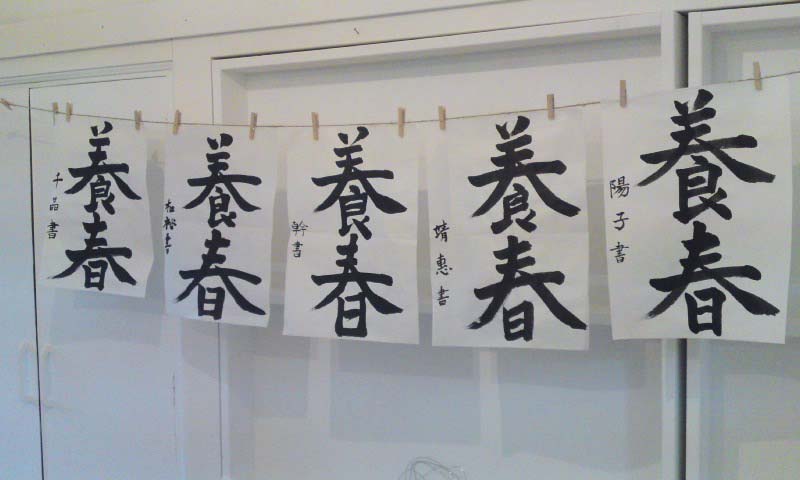 養春
千晶書
養春
養春
幹書
養春
靖惠書
養春
陽子書